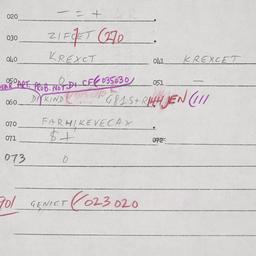 020 - = +
030 ZIFCET (270
040 KREXCT 041 KREXCET
050 0 051 -
PROB. NOT DI CF (035030)
060 DI KIND G81S+R HH JEN (111
070 FARHIKEVECAY
071 $ +
073 0
901 GENICT (023020